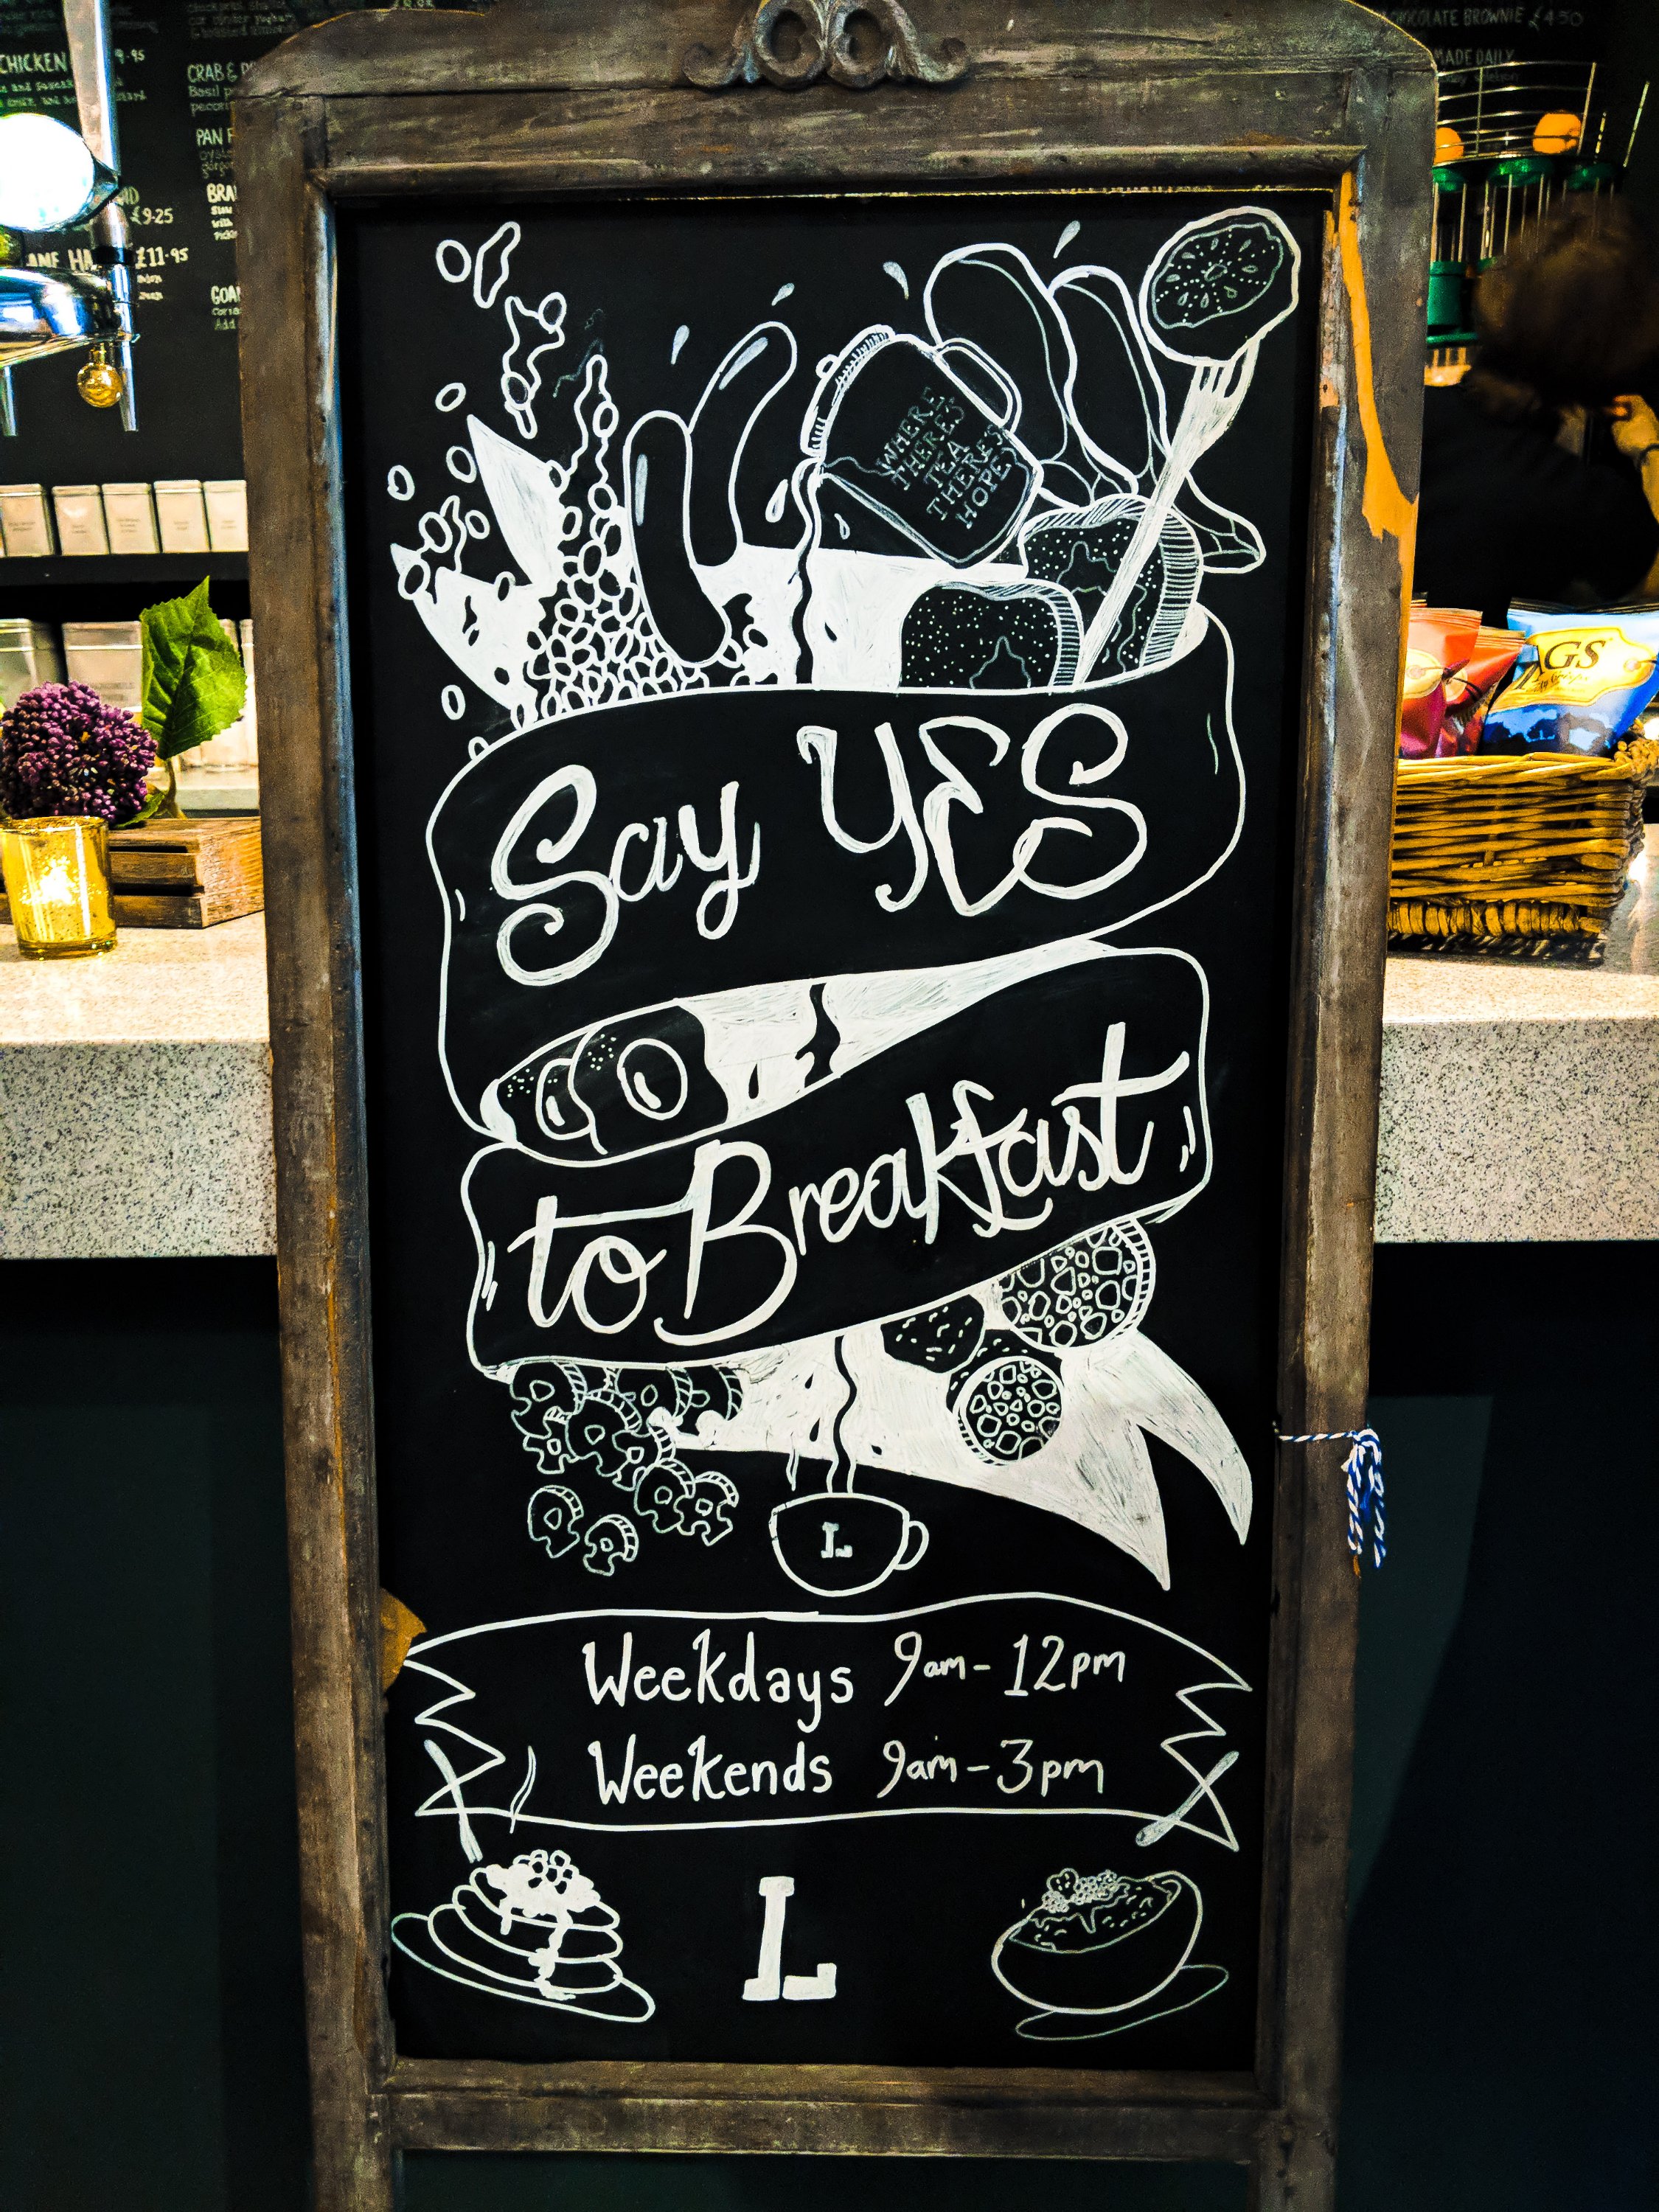 CHICKEN
9.95
CRAB &
Basil
PAN
£9.25
£11.95
Add
CHOCOLATE BROWNIE £4.50
MADE DAILY
WHERE
THERE'S
TEA
THERE'S
HOPE
GS
Say YES
to Breakfast
L
Weekdays 9am - 12pm
Weekends 9am - 3pm
L